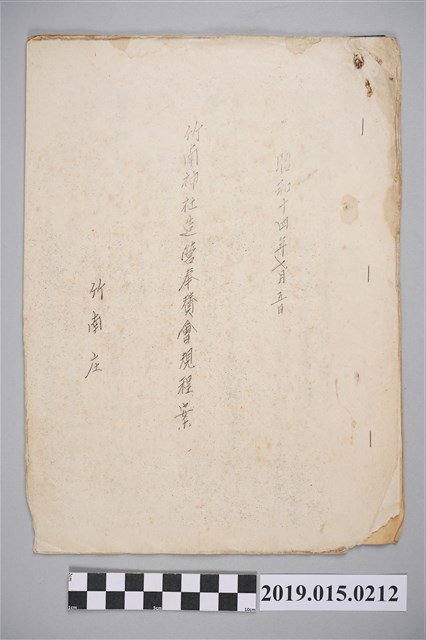 昭和十四年七月五日
竹南神社造營奉賛會規程案
竹南庄
2019.015.0212